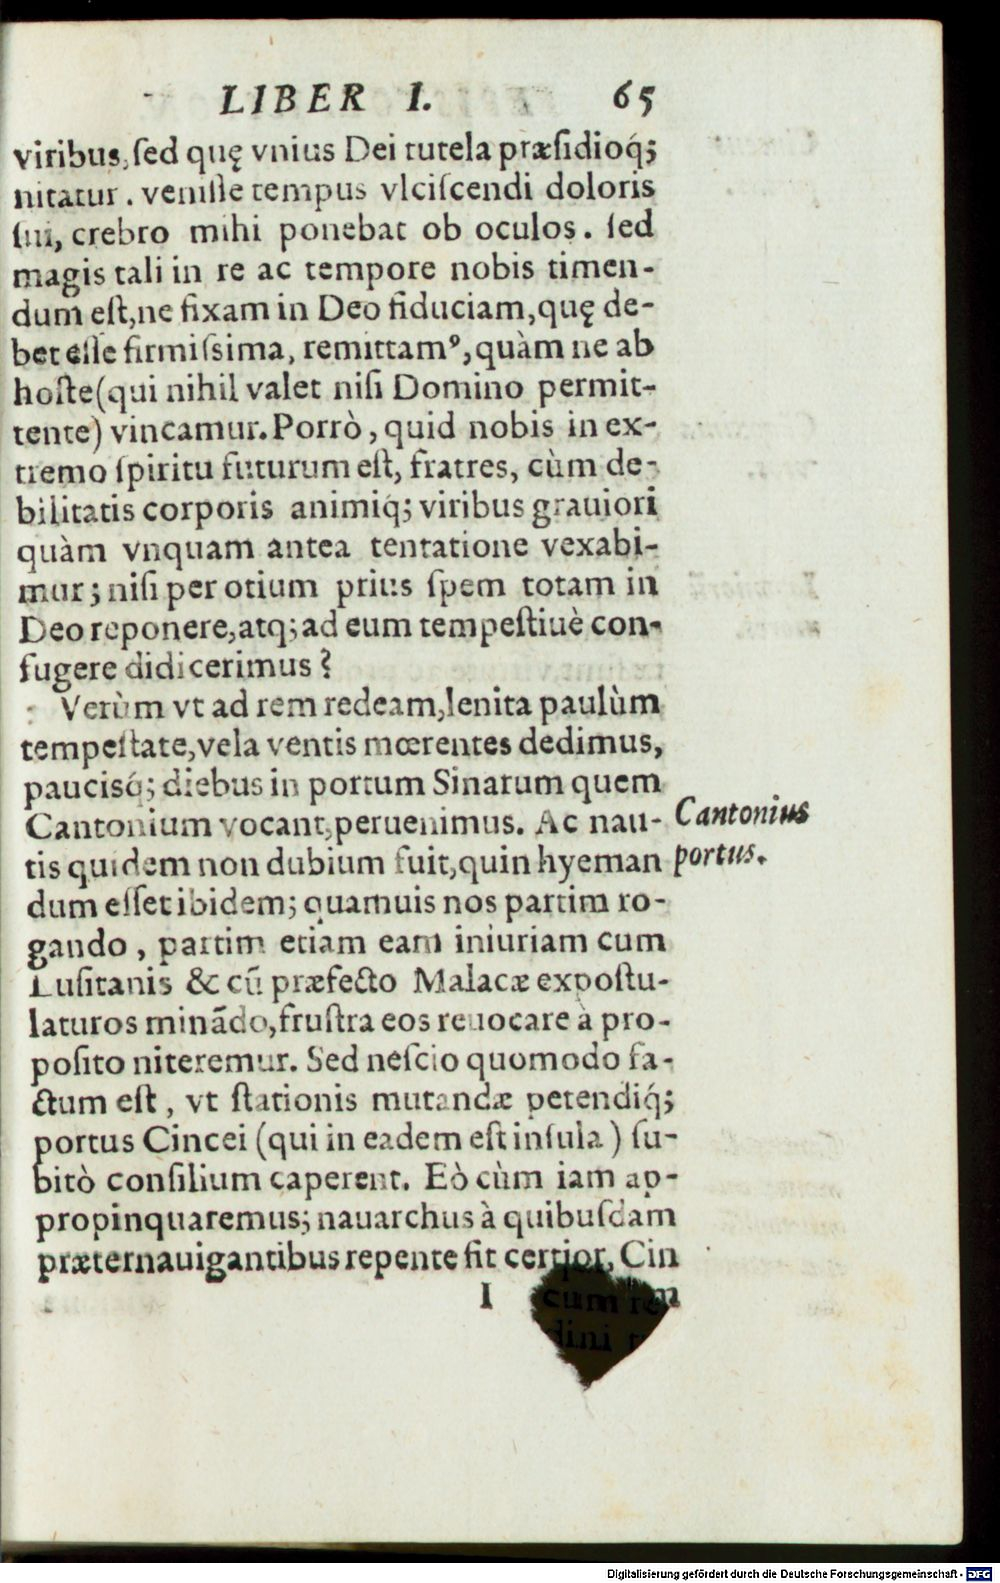 LIBER I. 65
viribus, sed quę vnius Dei tutela præsidioq́;
nitatur. venisse tempus vlciscendi doloris
sui, crebro mihi ponebat ob oculos. sed
magis tali in re ac tempore nobis timen-
dum est, ne fixam in Deo fiduciam, quę de-
bet esse firmissima, remittamꝰ, quàm ne ab
hoste (qui nihil valet nisi Domino permit-
tente) vincamur. Porrò, quid nobis in ex-
tremo spiritu futurum est, fratres, cùm de-
bilitatis corporis animiq; viribus grauiori
quàm vnquam antea tentatione vexabi-
mur; nisi per otium prius spem totam in
Deo reponere, atq; ad eum tempestiuè con-
fugere didicerimus?
Verùm vt ad rem redeam, lenita paulùm
tempestate, vela ventis mœrentes dedimus,
paucisq́; diebus in portum Sinarum quem
Cantonium vocant, peruenimus. Ac nau-
tis quidem non dubium fuit, quin hyeman
dum esset ibidem; quamuis nos partim ro-
gando, partim etiam eam iniuriam cum
Lusitanis & cū præfecto Malacæ expostu-
laturos minādo, frustra eos reuocare à pro-
posito niteremur. Sed nescio quomodo fa-
ctum est, vt stationis mutandæ petendiq́;
portus Cincei (qui in eadem est insula) su-
bitò consilium caperent. Eò cùm iam ap-
propinquaremus; nauarchus à quibusdam
præternauigantibus repente fit certior, Cin
I cum
dini
Cantonius
portus.
Digitalisierung gefördert durch die Deutsche Forschungsgemeinschaft - DFG